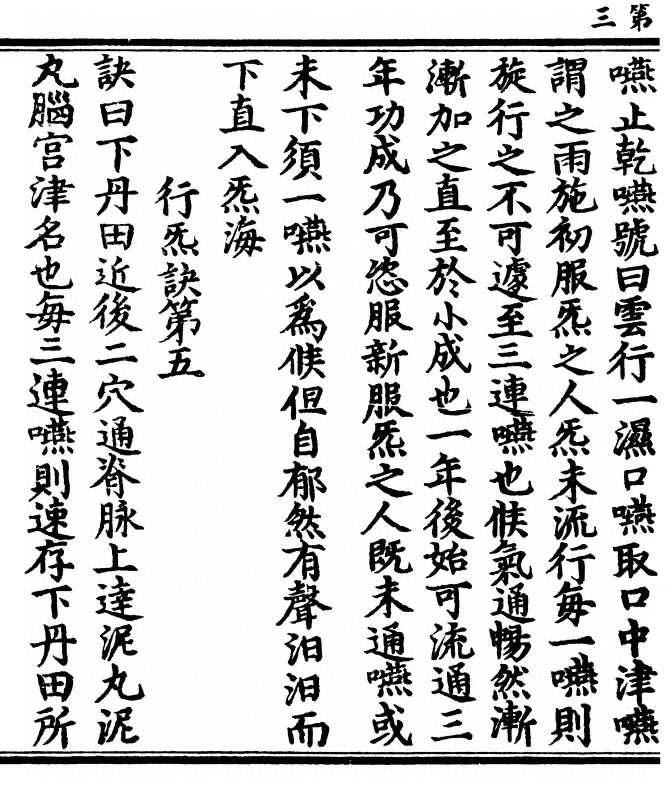 第三
嚥止乾嚥號曰雲行一濕口嚥取口中津嚥
謂之雨施初服炁之人炁未流行每一嚥則
旋行之不可遽至三連嚥也候氣通暢然漸
漸加之直至於小成也一年後始可流通三
年功成乃可恣服新服炁之人既未通嚥或
未下須一嚥以爲候但自郁然有聲汩汩而
下直入炁海
行炁訣第五
訣曰下丹田近後二穴通脊脉上達泥丸泥
丸腦宮津名也每三連嚥則速存下丹田所